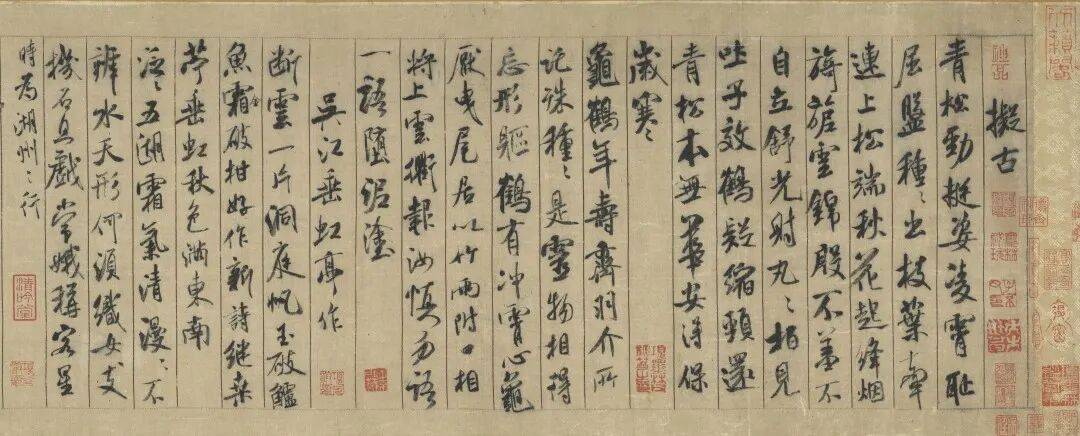 擬古
青松勁挺姿凌霄恥
屈盤種〻出枝葉牽
連上松端秋花起絳烟
旖旎雲錦殷不羞不
自立舒光射丸〻柏見
吐子效鶴疑縮頸還
青松本無華安得保
歲寒〻
龜鶴年壽齊羽介所
託殊種〻是靈物相得
忘形軀鶴有沖霄心龜
厭曳尾居以竹兩附口相
將上雲衢報汝慎勿語
一語墮泥塗
吳江垂虹亭作
断雲一片洞庭帆玉破鱸
魚霜金破柑好作新詩継桑
苧垂虹秋色滿東南
泛〻五湖霜氣清漫〻不
辨水天形何須織女支
機石且戲常娥稱客星
時為湖州之行
清吟堂